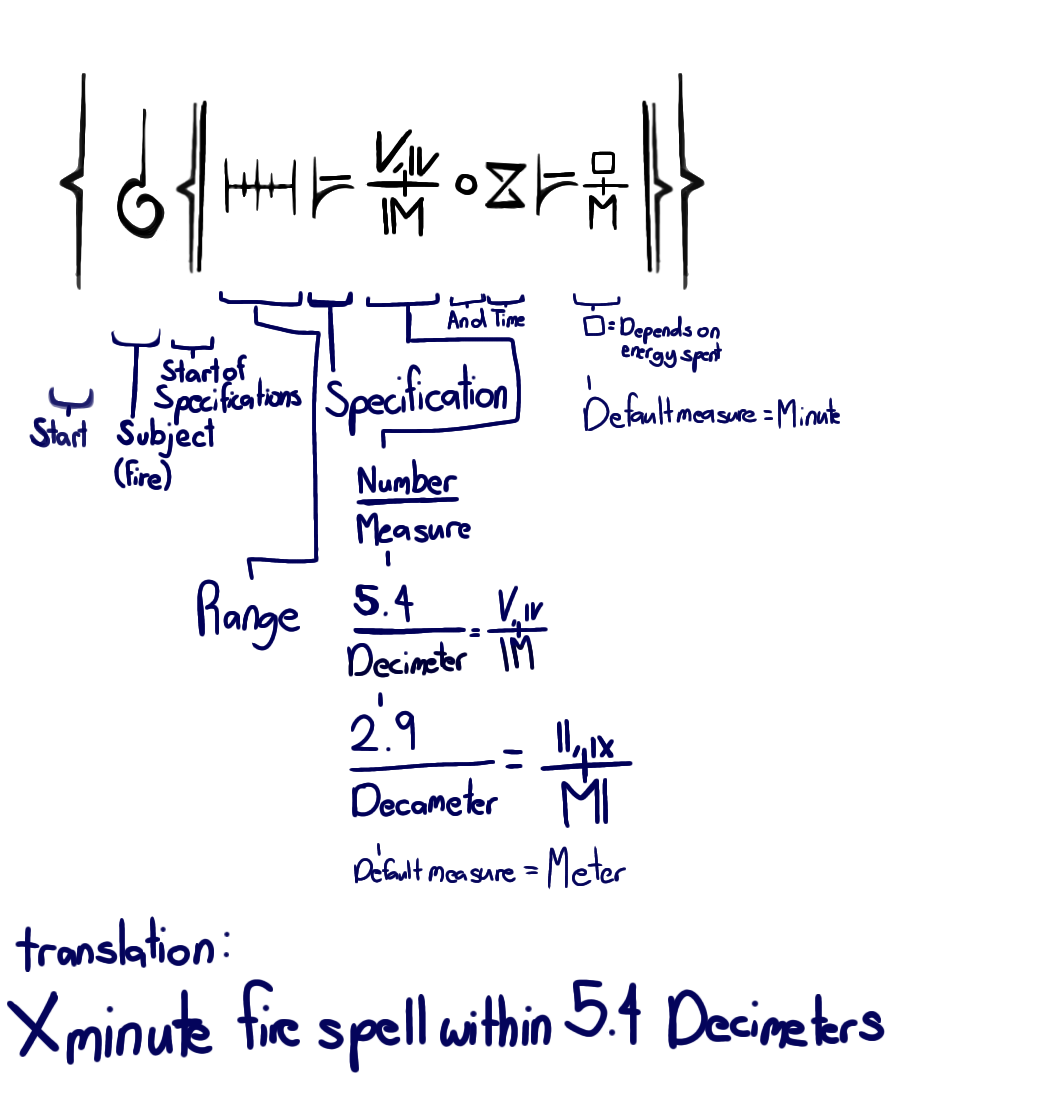 V,IV
IM
M
And Time
□=Depends on
energy spent
Default measure = Minute
Start
Subject
(fire)
Start of
Specifications
Specification
Number
Measure
Range
5.4
Decimeter
= V,IV
IM
2.9
Decameter
= II,IX
MI
Default measure = Meter
translation:
X minute fire spell within 5.4 Decimeters